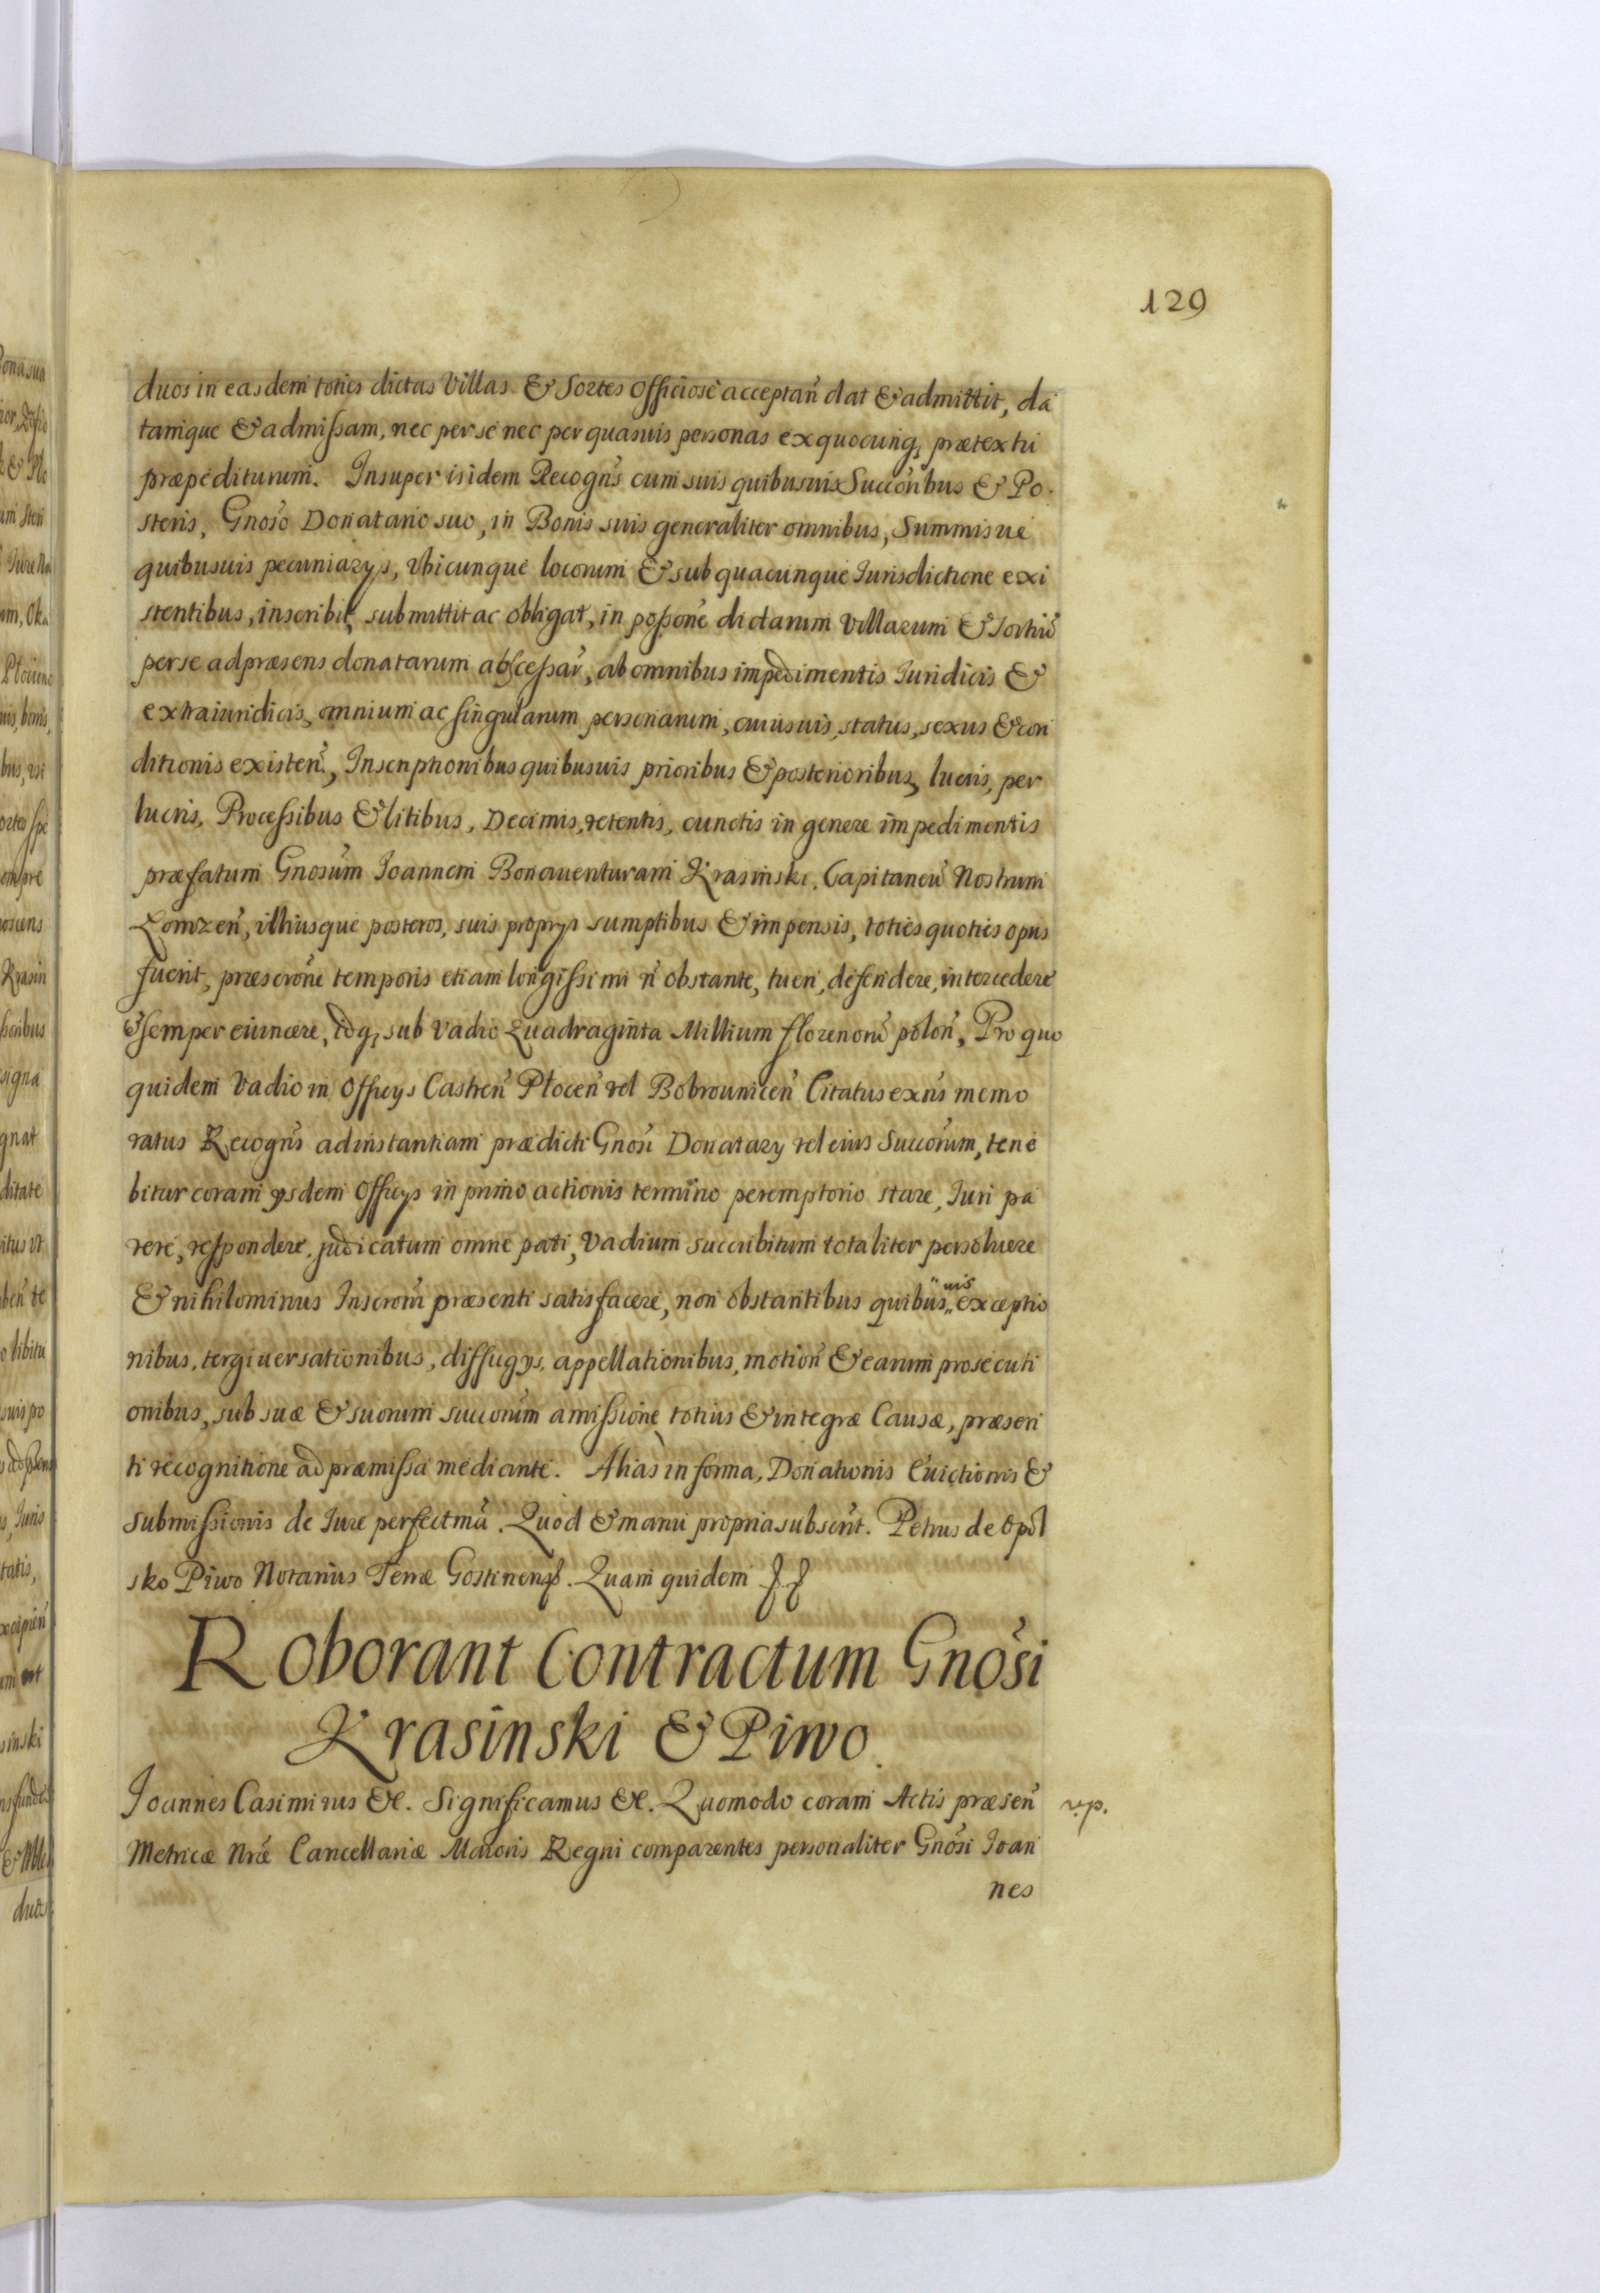 129
duos in easdem toties dictas Villas & Sortes officiose acceptan̄ dat & admittit, da
tamque & admissam, nec per se nec per quasuis personas ex quocunq; prætextu
præpediturum. Insuper isidem Recogn̄s cum suis quibusuis Succōribus & Po
steris, Gnoso Donatario suo, in Bonis suis generaliter omnibus, Summisue
quibusuis pecuniarys, Vbicunque locorum & sub quacunque Iurisdictione exi
stentibus, inscribit, submittit ac obligat, in possōne dictarum Villarum & Sortiū
per se ad præsens donatarum abscessar̄, ab omnibus impedimentis Iuridicis &
extraiuridicis, omnium ac singularum personarum, cuiusuis, status, sexus & con
ditionis existen̄, Inscriptionibus quibusuis prioribus & posterioribus, lucris, per
lucris, Processibus & litibus, Decimis, retentis, cunctis in genere impedimentis
præfatum Gnosum Joannem Bonauenturam Krasinski, Capitaneū Nostrum
Łomzen̄, illiusque posteros, suis proprys sumptibus & impensis, toties quoties opus
fuerit, præscrōne temporis etiam longissimi n̄ obstante, tueri, defendere, intercedere
& semper euincere, idq; sub Vadio Quadraginta Millium florenorū polon̄, Pro quo
quidem Vadio in Officys Castren̄ Płocen̄ vel Bobrounicen̄ Citatus exn̄s memo
ratus Recogn̄s ad instantiam prædicti Gnosi Donatary vel eius Succōrum, tene
bitur coram ysdem Officys in primo actionis termino peremptorio stare, Iuri pa
rere, respondere, judicatum omne pati, Vadium succubitum totaliter persoluere
& nihilominus Inscrōni præsenti satisfacere, non obstantibus quibus„uis„ exceptio
nibus, tergiuersationibus, diffugys, appellationibus, motion̄ & earum prosecuti
onibus, sub suæ & suorum succōrum amissione totius & integræ Causæ, præsen
ti recognitione ad præmissa mediante. Alias in forma, Donationis Euictionis &
submissionis de Iure perfectmā. Quod & manu propria subscrt. Petrus de Opol
sko Piwo Notarius Terræ Gostinens. Quam quidem
Roborant Contractum Gnosi
Krasinski & Piwo
Joannes Casimirus &c. Significamus &c. Quomodo coram Actis præsen̄ v.p.
Metricæ Nrǽ Cancellariæ Maioris Regni comparentes personaliter Gnosi Ioan
nes